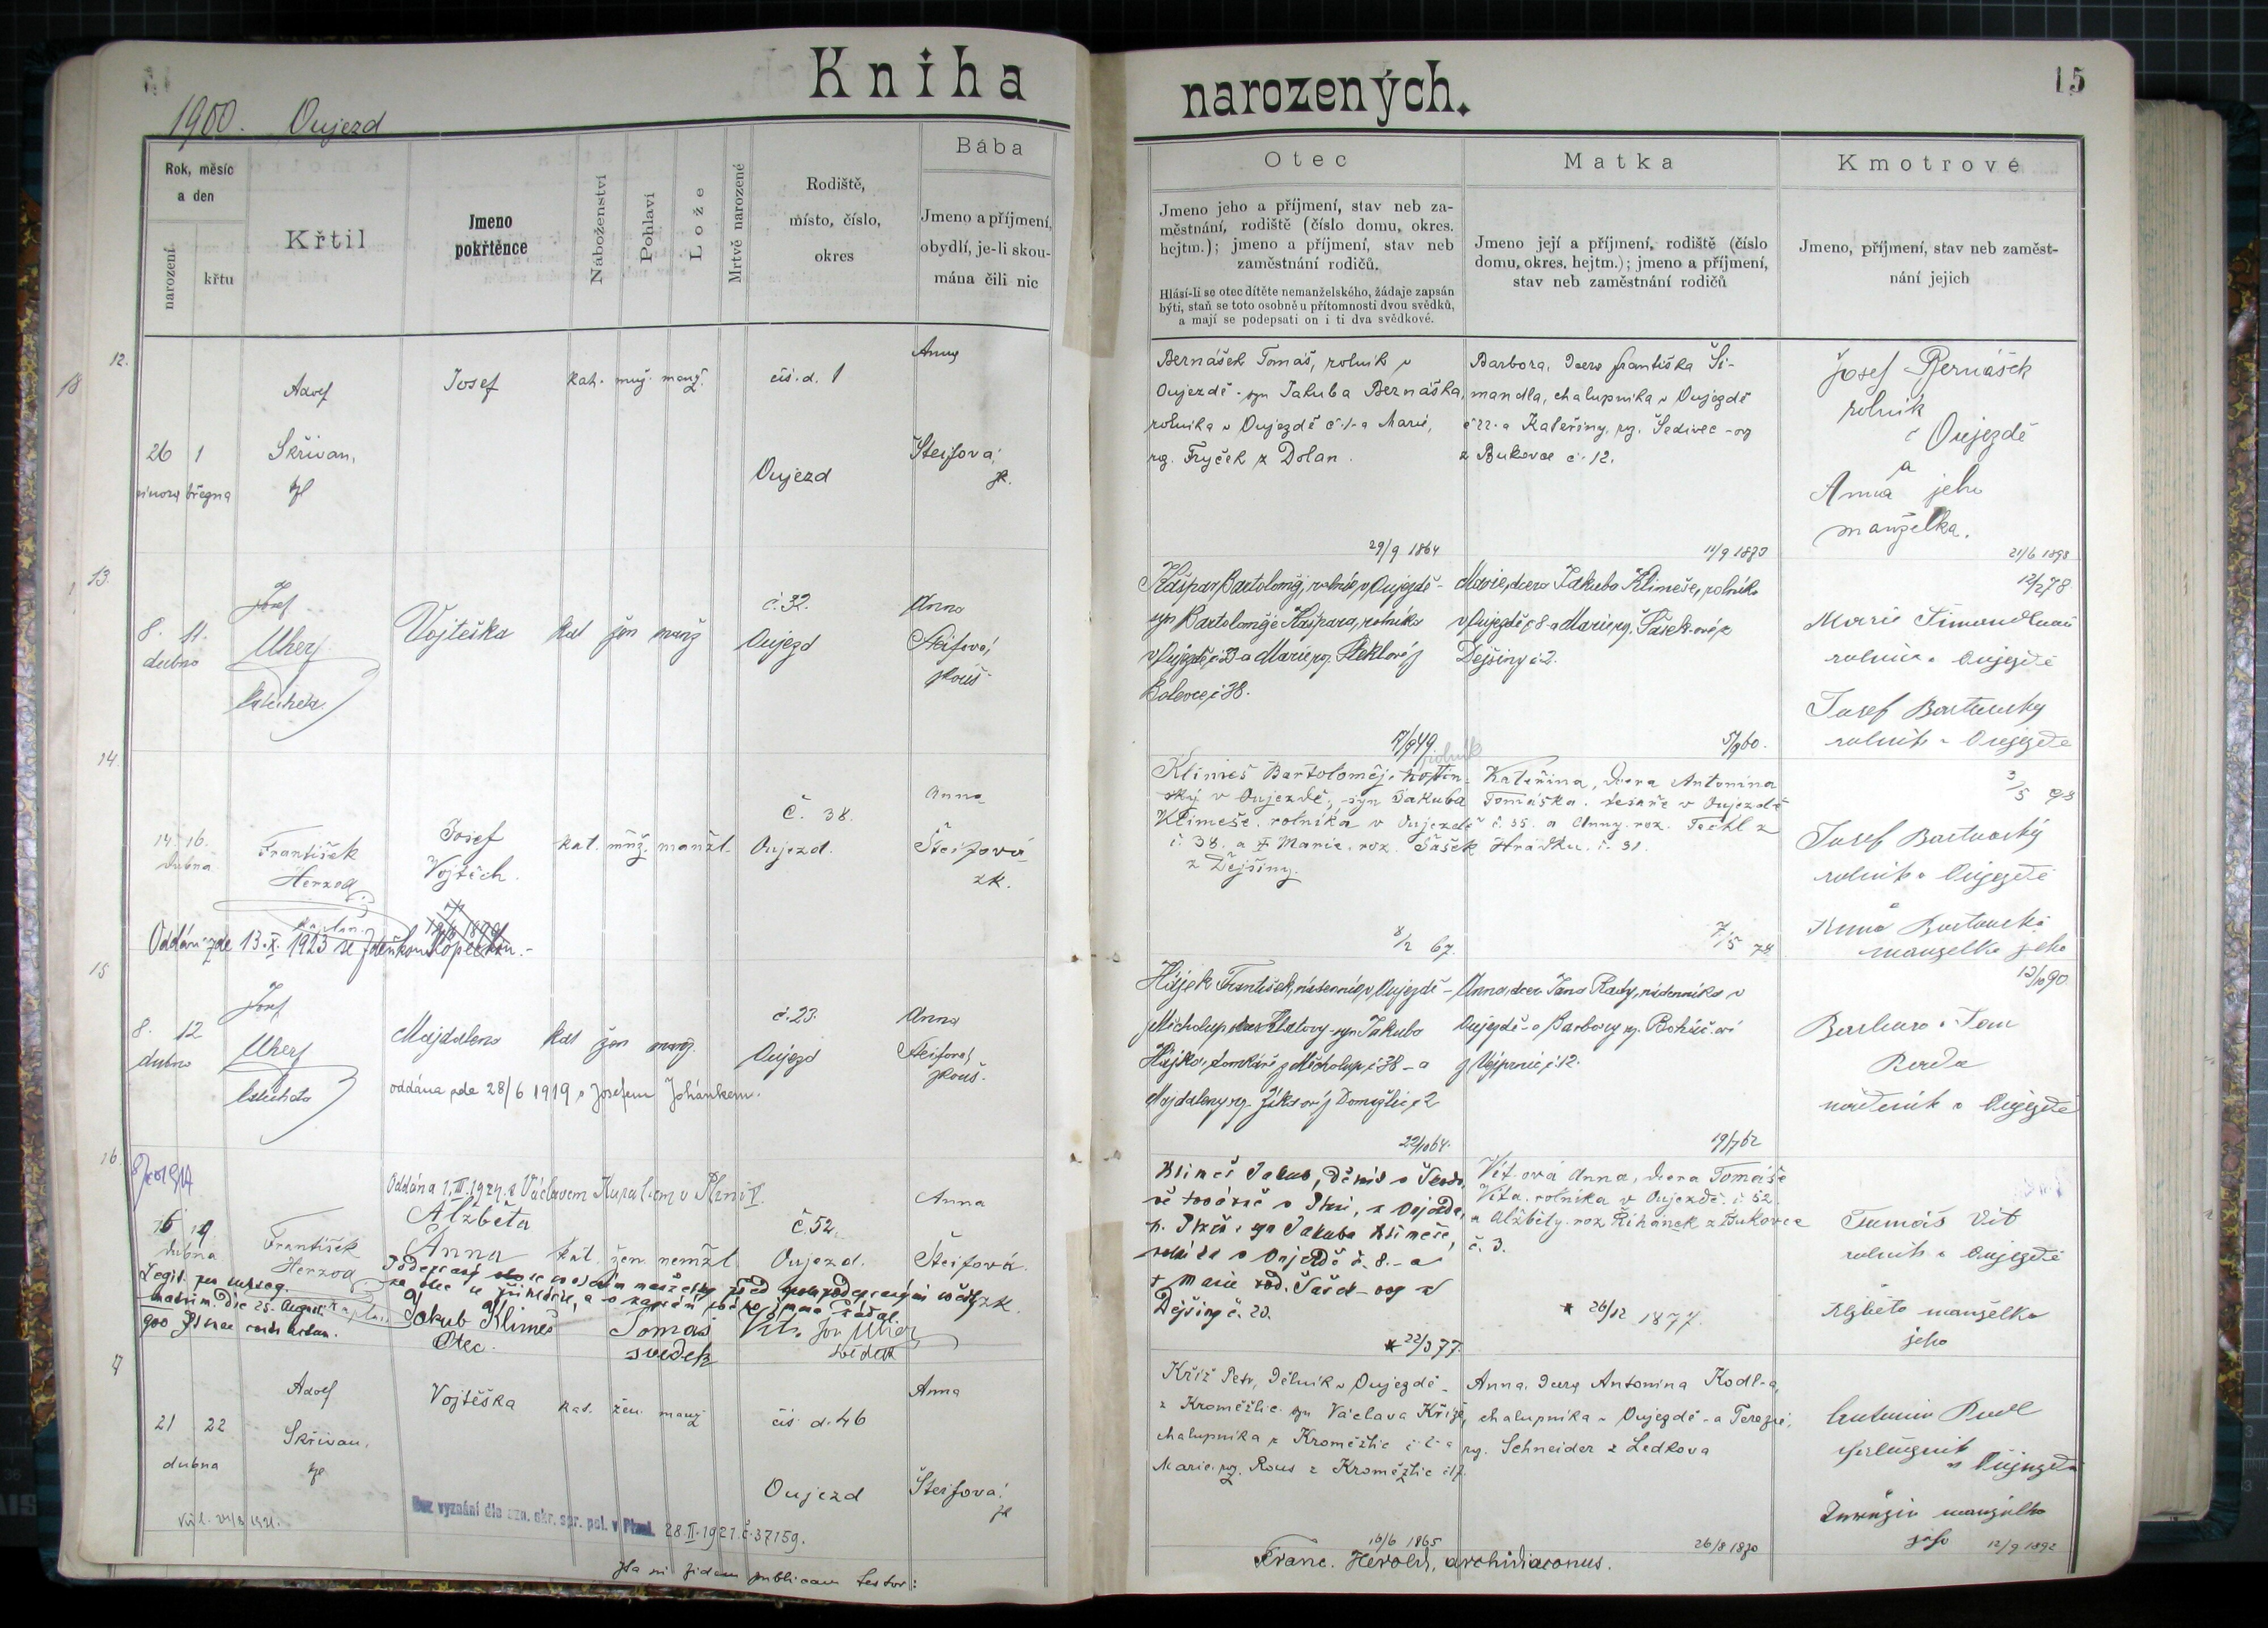 Kniha narozených.
15
1900. Oujezd
Rok, měsíc
a den
narození
křtu
Křtil
Jmeno
pokřtěnce
Náboženství
Pohlaví
Lože
Mrtvě narozené
Rodiště,
místo, číslo,
okres
Bába
Jmeno a příjmení,
obydlí, je-li skou-
mána čili nic
Otec
Jmeno jeho a příjmení, stav neb za-
městnání, rodiště (číslo domu, okres.
hejtm.); jmeno a příjmení, stav neb
zaměstnání rodičů.
Hlásí-li se otec dítěte nemanželského, žádaje zapsán
býti, staň se toto osobně u přítomnosti dvou svědků,
a mají se podepsati on i ti dva svědkové.
Matka
Jmeno její a příjmení, rodiště (číslo
domu, okres. hejtm.); jmeno a příjmení,
stav neb zaměstnání rodičů
Kmotrové
Jmeno, příjmení, stav neb zaměst-
nání jejich
12.
18
26 1
února března
Adolf
Skřivan,
Josef
kat. muž. manž.
čís. d. 1
Oujezd
Anna
Steifová,
Bernášek Tomáš, rolník v
Oujezdě - syn Jakuba Bernáška,
rolníka v Oujezdě č. 1 - a Marie,
roz. Fryček z Dolan.
29/9 1864
Barbora, dcera Františka Ši-
mandla, chalupníka v Oujezdě
č 22 - a Kateřiny, roz. Šedivec - ov
z Bukovce č. 12.
Josef Bernášek
rolník
v Oujezdě
a
Anna jeho
manželka.
21/6 1898
13.
8. 11.
dubna
Josef
Uherf
Vojteška
kat žen manž
č. 32.
Oujezd
Anna
Steifová,
zkouš.
Kašpar Bartoloměj, rolník v Oujezdě -
syn Bartoloměje Kašpara, rolníka
v Oujezdě č. 23 - a Marie, roz. Steklové z
Bolevce č. 38.
Marie, dcera Jakuba Klimeše, rolníka
v Oujezdě č. 8 - a Marie, roz. Šašek-ové z
Dejšiny č. 2.
5/9 60.
12/2 78
Marie Šimandlová
rolnice v Oujezdě
Josef Bartovský
rolník v Oujezdě
14.
14. 16.
dubna
František
Herzog
kaplan.
Josef
Vojtěch.
kat. muž. manžl.
č. 38.
Oujezd.
Anna
Šteifová
zk.
Oddán zde 13. X. 1923 se Zdeňkou Kopeckou. -
rolník
Klimeš Bartoloměj, hostin-
ský v Oujezdě, syn Jakuba
Klimeše, rolníka v Oujezdě
č. 38. a † Marie, roz. Šašek
z Dejšiny.
8/2 67.
Kateřina, dcera Antonína
Tomáška, tesaře v Oujezdě
č. 35. a Anny, roz. Techl z
Hrádku. č. 31.
7/5 74
Josef Bartovský
rolník v Oujezdě
a
Anna Bartovská
manželka jeho
15
8. 12
dubna
Josef
Uherf
Majdalena
kat žen manž.
č. 23.
Oujezd
Anna
Steifová,
zkouš.
oddána zde 28/6 1919 s Josefem Johánkem.
Hájek František, nádenník v Oujezdě -
z Měcholup okres Klatovy - syn Jakuba
Hájka, domkáře z Měcholup, č. 38 - a
Majdaleny roz. Žíkové z Domažlic č. 2
22/10 64.
Anna, dcera Jana Rady, nádenníka v
Oujezdě - a Barbory roz. Boháč-ové
z Vejprnic č. 12.
19/7 62
12/10 90.
Barbora a Jan
Berda
nádeník v Oujezdě
16
16 19
dubna
František
Herzog
kaplan.
Oddána 1. III. 1924 s Václavem Kuralem v Plzni V.
Alžběta
Anna
kat. žen. nemžl.
č. 52.
Oujezd.
Anna
Šteifová.
zk.
Jakub Klimeš
Otec.
Tomáš Vít.
svědek
Jos. Uherf
svědek
Klimeš Jakub, dělník v Škodo-
vě továrně v Plzni, z Oujezda,
h. Plzeň, syn Jakuba Klimeše,
rolníka v Oujezdě č. 8. - a
† Marie rod. Šašek-ovy z
Dejšiny č. 20.
* 22/3 77.
Vít-ová Anna, dcera Tomáše
Víta, rolníka v Oujezdě č 52.
a Alžběty, roz. Řihánek z Bukovce
č. 3.
* 26/12 1877.
Tomáš Vít
rolník v Oujezdě
Alžběta manželka
jeho
17
21 22
dubna
Adolf
Skřivan,
Vojtěška
kat. žen. manž
čís. d. 46
Oujezd
Anna
Šteifová,
Bez vyznání dle ozn. okr. spr. pol. v Plzni. 28. II. 1921. č. 37159.
Kříž Petr, dělník v Oujezdě -
z Kroměždic, syn Václava Kříže,
chalupníka z Kroměždic
Marie, roz. Rous z Kroměždic č 17.
16/6 1865
Anna, dcera Antonína Kodl-a,
chalupníka v Oujezdě - a Terezie,
roz. Schneider z Ledkova
26/8 1870
manželka
jeho
12/9 1892
Ita in fidem publicam testor:
Franc. Herold, archidiaconus.